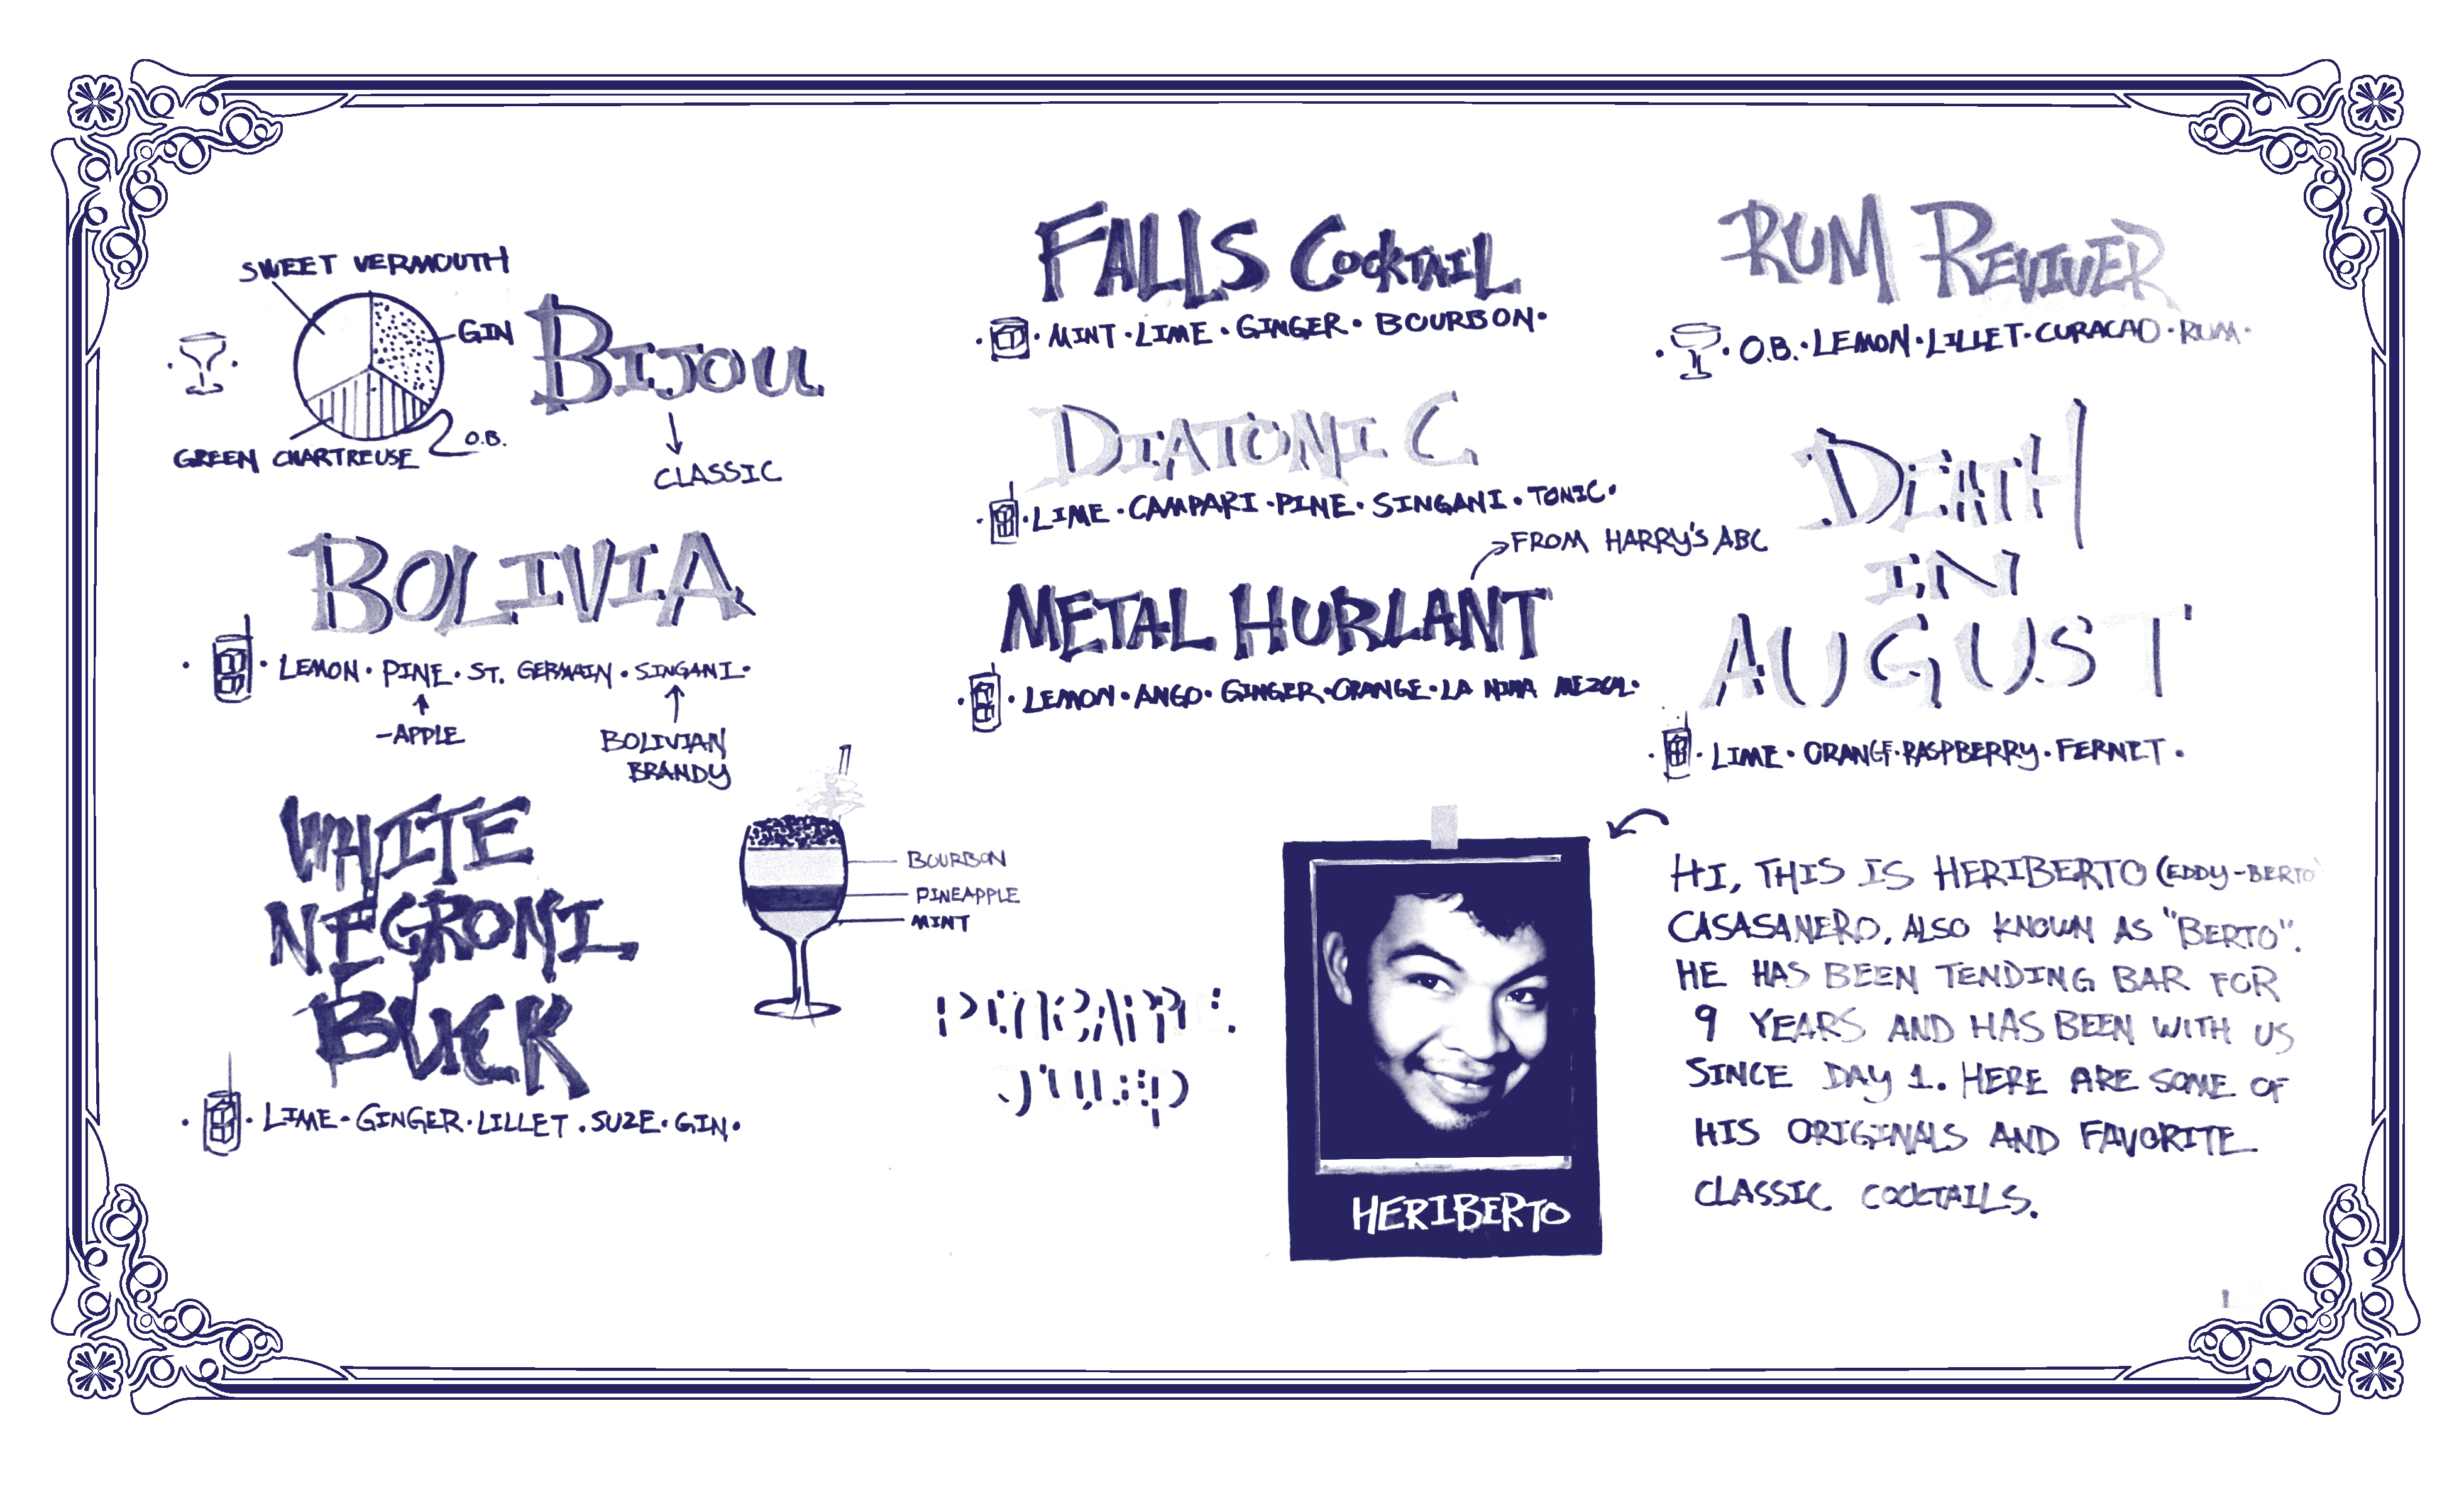 SWEET VERMOUTH
GIN
BIJOU
O.B.
GREEN CHARTREUSE
CLASSIC
BOLIVIA
· LEMON · PINE · ST. GERMAIN · SINGANI ·
-APPLE
BOLIVIAN
BRANDY
WHITE
NEGRONI
BUCK
· LIME · GINGER · LILLET · SUZE · GIN ·
BOURBON
PINEAPPLE
MINT
FALLS COCKTAIL
· MINT · LIME · GINGER · BOURBON ·
DIATONIC
· LIME · CAMPARI · PINE · SINGANI · TONIC ·
FROM HARRY'S ABC
METAL HURLANT
· LEMON · ANGO · GINGER · ORANGE · LA NIÑA MEZCAL ·
RUM REVIVER
· O.B. · LEMON · LILLET · CURACAO · RUM ·
DEATH
IN
AUGUST
· LIME · ORANGE · RASPBERRY · FERNET ·
HERIBERTO
HI, THIS IS HERIBERTO (EDDY-BERTO
CASASANERO, ALSO KNOWN AS "BERTO".
HE HAS BEEN TENDING BAR FOR
9 YEARS AND HAS BEEN WITH US
SINCE DAY 1. HERE ARE SOME OF
HIS ORIGINALS AND FAVORITE
CLASSIC COCKTAILS.